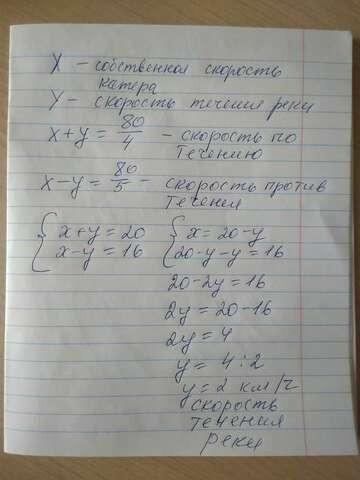 X - собственная скорость
катера
У - скорость течения реки
x+y = 80/4 - скорость по
Течению
x-y = 80/5 - скорость против
Течения
{ x+y=20 { x=20-y
x-y=16 20-y-y=16
20-2y=16
2y=20-16
2y=4
y= 4:2
y=2 км/ч
скорость
течения
реки